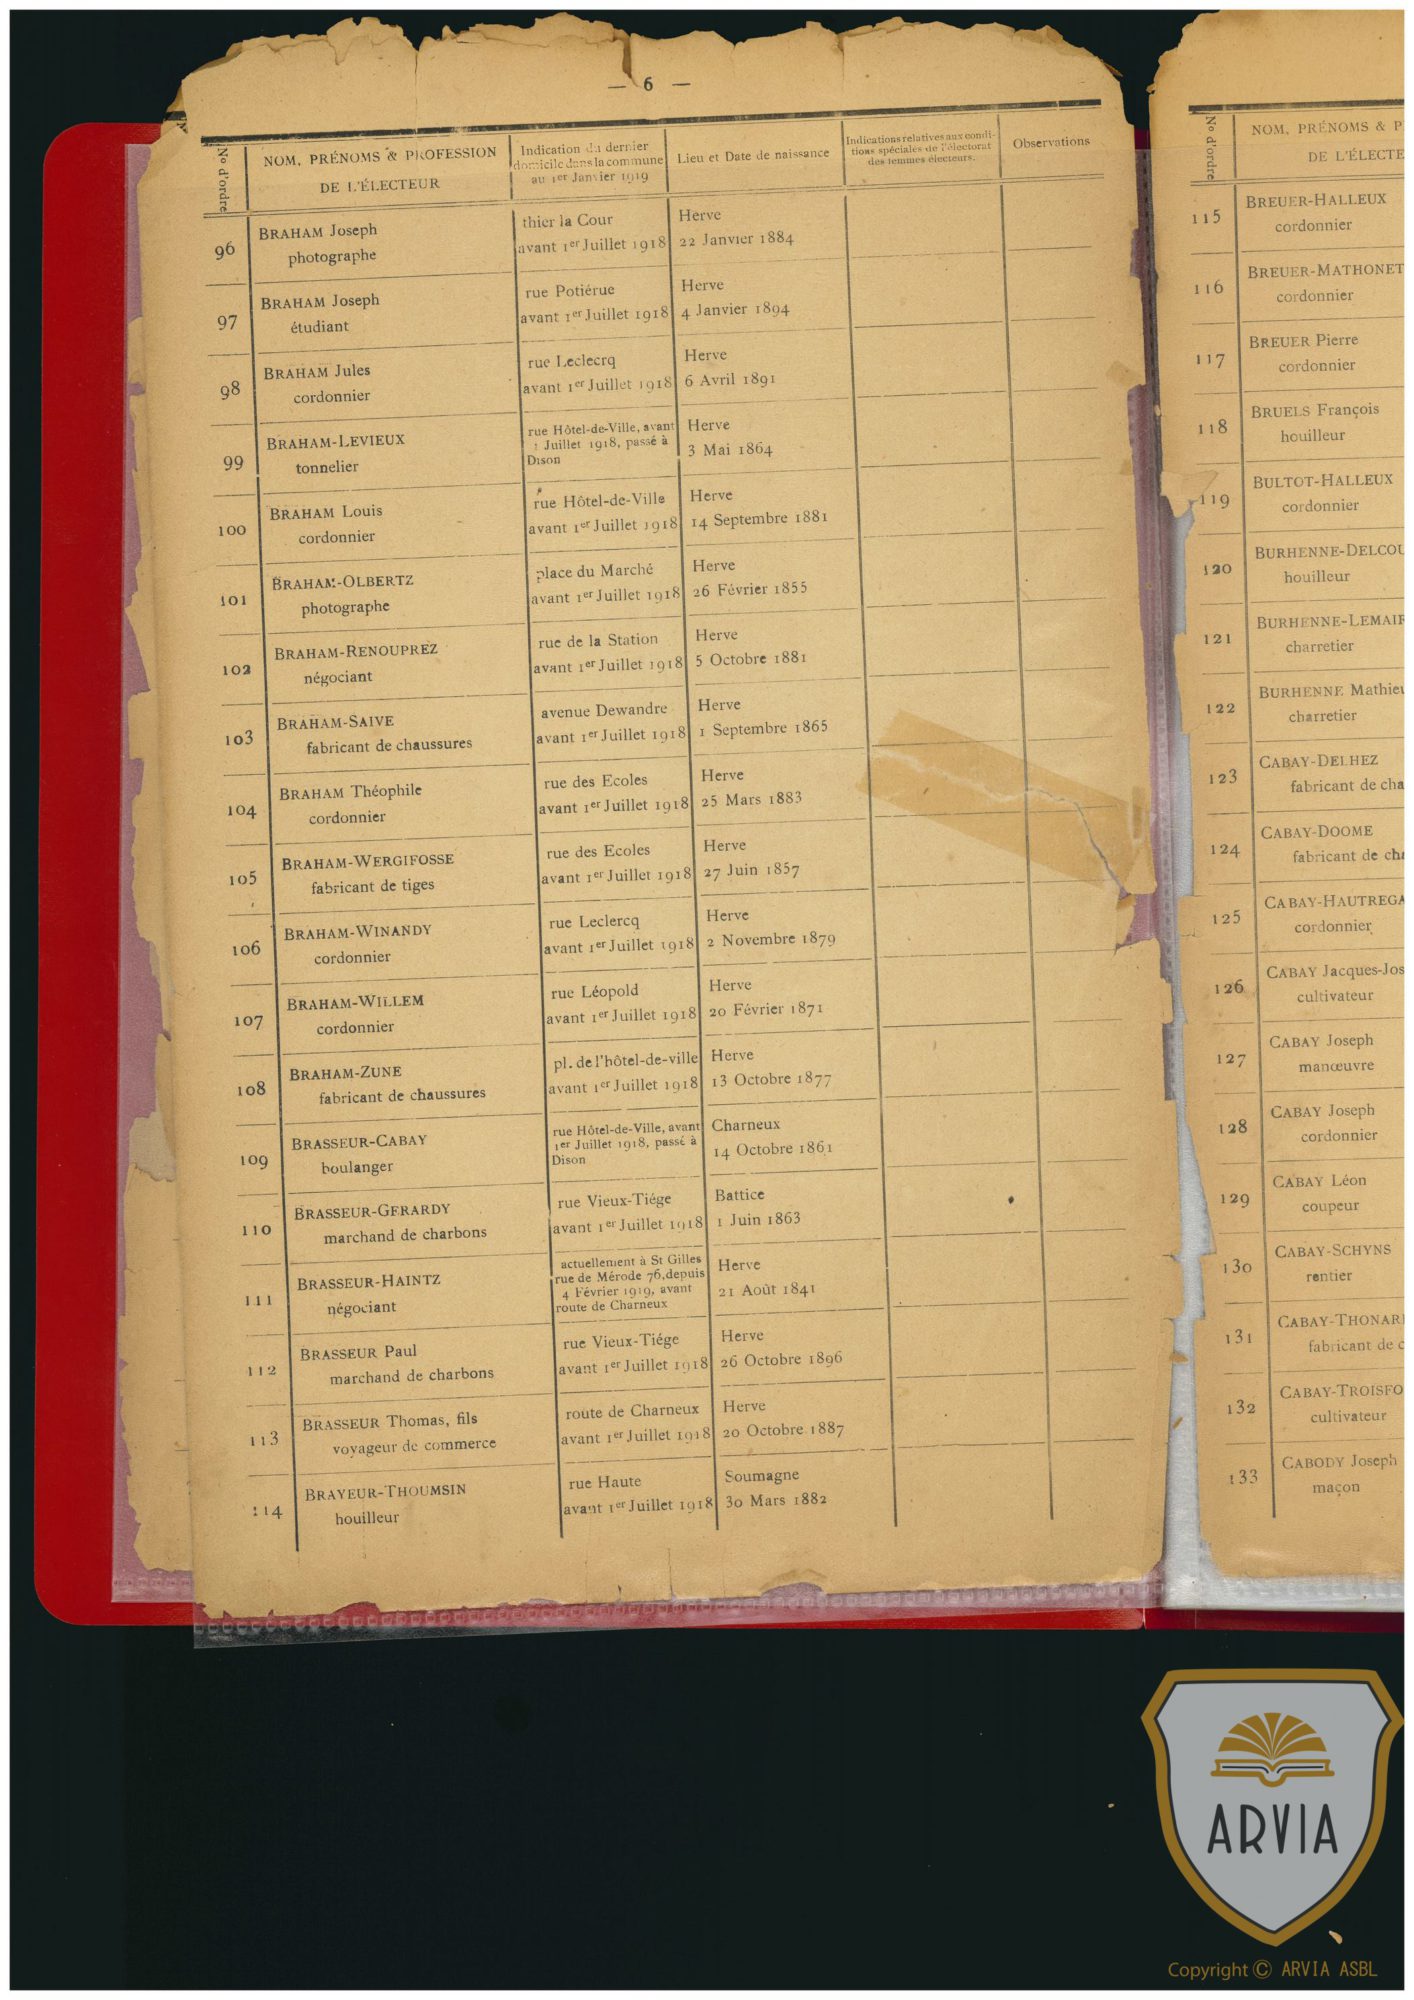 — 6 —
No d'ordre
NOM, PRÉNOMS & PROFESSION
DE L'ÉLECTEUR
Indication du dernier
domicile dans la commune
au 1er Janvier 1919
Lieu et Date de naissance
Indications relatives aux condi-
tions spéciales de l'électorat
des femmes électeurs.
Observations
96
BRAHAM Joseph
photographe
thier la Cour
avant 1er Juillet 1918
Herve
22 Janvier 1884
97
BRAHAM Joseph
étudiant
rue Potiérue
avant 1er Juillet 1918
Herve
4 Janvier 1894
98
BRAHAM Jules
cordonnier
rue Leclecrq
avant 1er Juillet 1918
Herve
6 Avril 1891
99
BRAHAM-LEVIEUX
tonnelier
rue Hôtel-de-Ville, avant
1 Juillet 1918, passé à
Dison
Herve
3 Mai 1864
100
BRAHAM Louis
cordonnier
rue Hôtel-de-Ville
avant 1er Juillet 1918
Herve
14 Septembre 1881
101
BRAHAM-OLBERTZ
photographe
place du Marché
avant 1er Juillet 1918
Herve
26 Février 1855
102
BRAHAM-RENOUPREZ
négociant
rue de la Station
avant 1er Juillet 1918
Herve
5 Octobre 1881
103
BRAHAM-SAIVE
fabricant de chaussures
avenue Dewandre
avant 1er Juillet 1918
Herve
1 Septembre 1865
104
BRAHAM Théophile
cordonnier
rue des Ecoles
avant 1er Juillet 1918
Herve
25 Mars 1883
105
BRAHAM-WERGIFOSSE
fabricant de tiges
rue des Ecoles
avant 1er Juillet 1918
Herve
27 Juin 1857
106
BRAHAM-WINANDY
cordonnier
rue Leclercq
avant 1er Juillet 1918
Herve
2 Novembre 1879
107
BRAHAM-WILLEM
cordonnier
rue Léopold
avant 1er Juillet 1918
Herve
20 Février 1871
108
BRAHAM-ZUNE
fabricant de chaussures
pl. de l'hôtel-de-ville
avant 1er Juillet 1918
Herve
13 Octobre 1877
109
BRASSEUR-CABAY
boulanger
rue Hôtel-de-Ville, avant
1er Juillet 1918, passé à
Dison
Charneux
14 Octobre 1861
110
BRASSEUR-GERARDY
marchand de charbons
rue Vieux-Tiége
avant 1er Juillet 1918
Battice
1 Juin 1863
111
BRASSEUR-HAINTZ
négociant
actuellement à St Gilles
rue de Mérode 76, depuis
4 Février 1919, avant
route de Charneux
Herve
21 Août 1841
112
BRASSEUR Paul
marchand de charbons
rue Vieux-Tiége
avant 1er Juillet 1918
Herve
26 Octobre 1896
113
BRASSEUR Thomas, fils
voyageur de commerce
route de Charneux
avant 1er Juillet 1918
Herve
20 Octobre 1887
114
BRAYEUR-THOUMSIN
houilleur
rue Haute
avant 1er Juillet 1918
Soumagne
30 Mars 1882
No d'ordre
NOM, PRÉNOMS & P
DE L'ÉLECTE
115
BREUER-HALLEUX
cordonnier
116
BREUER-MATHONET
cordonnier
117
BREUER Pierre
cordonnier
118
BRUELS François
houilleur
119
BULTOT-HALLEUX
cordonnier
120
BURHENNE-DELCOU
houilleur
121
BURHENNE-LEMAIR
charretier
122
BURHENNE Mathieu
charretier
123
CABAY-DELHEZ
fabricant de cha
124
CABAY-DOOME
fabricant de cha
125
CABAY-HAUTREGA
cordonnier
126
CABAY Jacques-Jos
cultivateur
127
CABAY Joseph
manœuvre
128
CABAY Joseph
cordonnier
129
CABAY Léon
coupeur
130
CABAY-SCHYNS
rentier
131
CABAY-THONAR
fabricant de c
132
CABAY-TROISFO
cultivateur
133
CABODY Joseph
maçon
ARVIA
Copyright © ARVIA ASBL